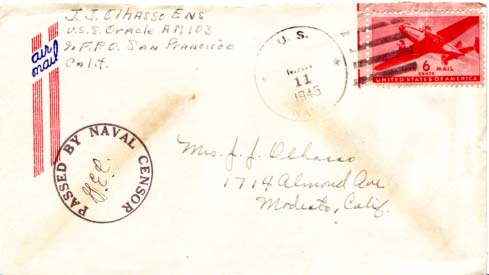 J. J. Olhasso Ens
U.S.S. Oracle AM103
℅ F.P.O. San Francisco
Calif.
air mail
U. S.
11
1945
6 CENTS MAIL
UNITED STATES OF AMERICA
PASSED BY NAVAL CENSOR
Mrs. J. J. Olhasso
1714 Almond Ave
Modesto, Calif.